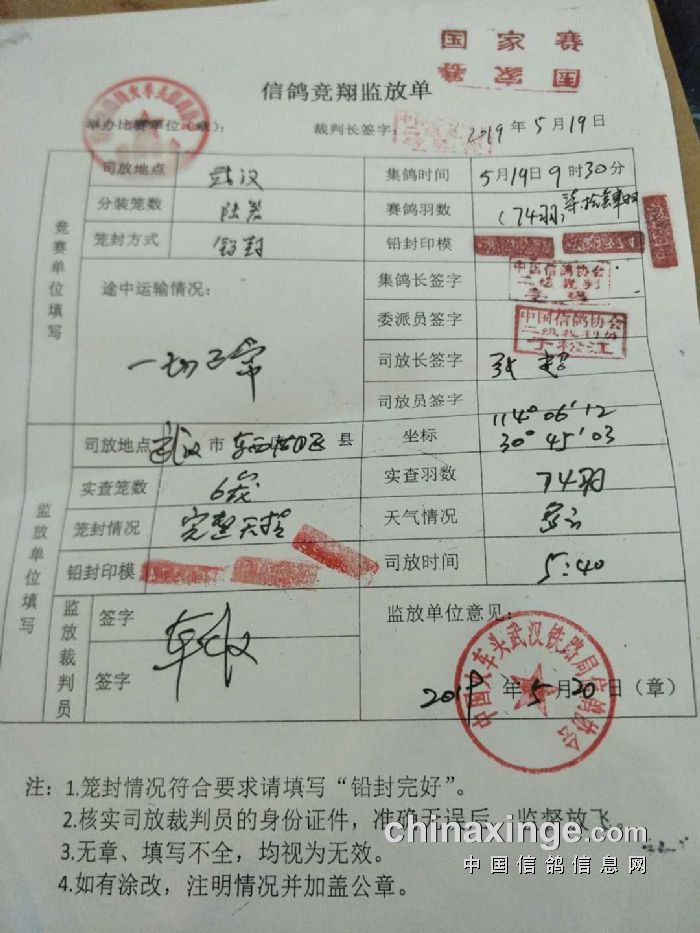 国家赛
国家赛
信鸽竞翔监放单
举办比赛单位(章): 裁判长签字: 2019年5月19日
竞赛单位填写
司放地点 武汉 集鸽时间 5月19日9时30分
分装笼数 陆 赛鸽羽数 (74羽)
笼封方式 铅封 铅封印模
途中运输情况: 集鸽长签字 中国信鸽协会
二级裁判
一切正常 委派员签字 中国信鸽协会
二级裁判员
于松江
司放长签字 张超
司放员签字
监放单位填写
司放地点 武汉市 县 坐标 114°06'12
30°45'03
实查笼数 6 实查羽数 74羽
笼封情况 完整无损 天气情况 多云
铅封印模 司放时间 5:40
监放裁判员 签字 监放单位意见:
签字
中国火车头武汉铁路局信鸽协会
2019年5月20日(章)
注: 1.笼封情况符合要求请填写“铅封完好”。
2.核实司放裁判员的身份证件,准确无误后,监督放飞。
3.无章、填写不全,均视为无效。
4.如有涂改,注明情况并加盖公章。
chinaxinge.com
中国信鸽信息网